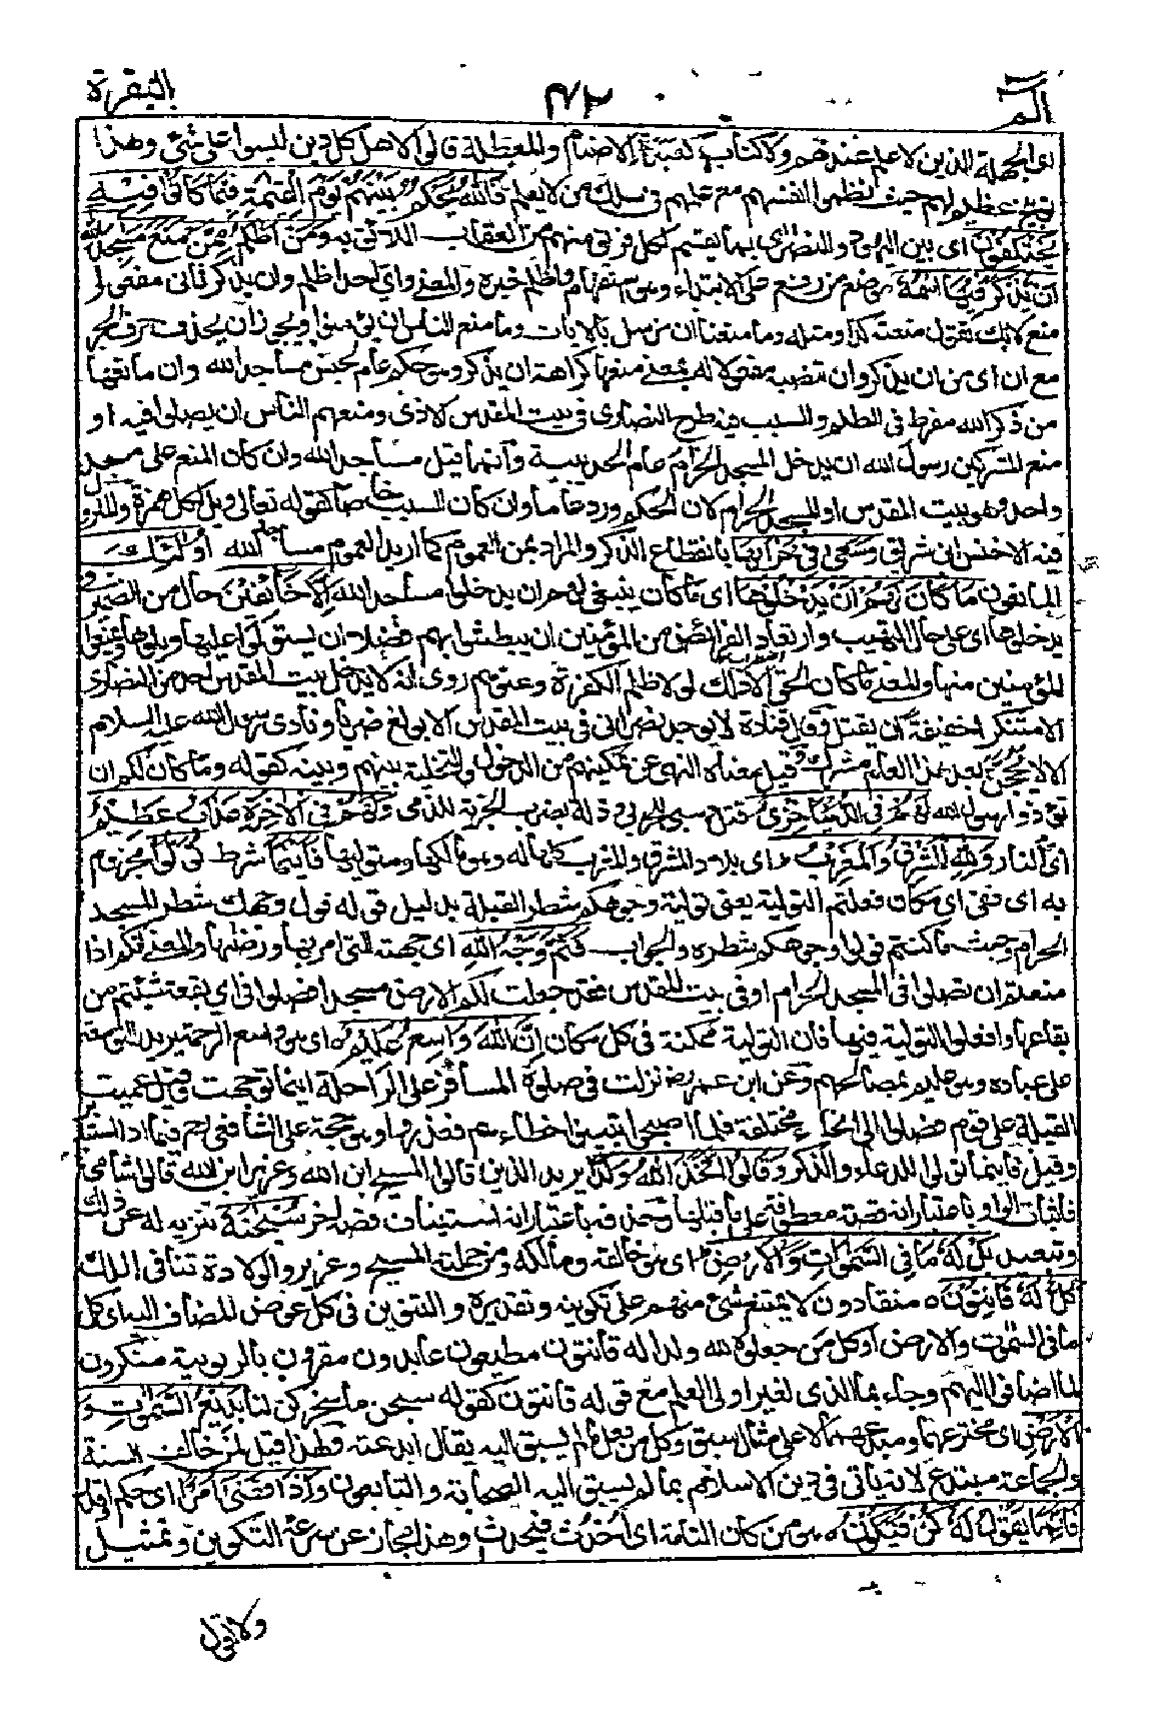 الم ٤٢ البقرة
اى الجهلة الذين لا علم عندهم ولا كتاب كعبدة الاصنام والمعطلة قالوا لاهل كل دين ليسوا على شئ وهذا
توبيخ عظيم لهم حيث نظموا انفسهم مع علمهم فى سلك من لا يعلم فَاللّٰهُ يَحْكُمُ بَيْنَهُمْ يَوْمَ الْقِيٰمَةِ فِيْمَا كَانُوْا فِيْهِ
يَخْتَلِفُوْنَ اى بين اليهود والنصارى بما يقسم لكل فريق منهم من العقاب اللائق به وَمَنْ اَظْلَمُ مِمَّنْ مَّنَعَ مَسٰجِدَ اللّٰهِ
اَنْ يُّذْكَرَ فِيْهَا اسْمُهٗ موضع من رفع على الابتداء وهو استفهام واظلم خبره والمعنى واى احد اظلم وان يذكر ثانى مفعولى
منع لانك تقول منعته كذا ومثله وما منعنا ان نرسل بالايات وما منع الناس ان يؤمنوا ويجوز ان يحذف حرف الجر
مع ان اى من ان يذكر وان تنصبه مفعولا له بمعنى منعها كراهة ان يذكر وهو حكم عام لجنس مساجد الله وان مانعها
من ذكر الله مفرط فى الظلم والسبب فيه طرح النصارى فى بيت المقدس الاذى ومنعهم الناس ان يصلوا فيه او
منع المشركين رسول الله ان يدخل المسجد الحرام عام الحديبية وانما قيل مساجد الله وان كان المنع على مسجد
واحد وهو بيت المقدس او المسجد الحرام لان الحكم ورد عاما وان كان السبب خاصا كقوله تعالى ويل لكل همزة والمنزول
فيه الاخنس ابن شريق وَسَعٰى فِيْ خَرَابِهَا بانقطاع الذكر والمراد بمن العموم كما اريد العموم مساجد الله اُولٰٓئِكَ
المانعون مَا كَانَ لَهُمْ اَنْ يَّدْخُلُوْهَا اى ما كان ينبغى لهم ان يدخلوا مساجد الله اِلَّا خَآئِفِيْنَ حال من الضمير فى
يدخلوها اى على حال التهيب وارتعاد الفرائص من المؤمنين ان يبطشوا بهم فضلا ان يستولوا عليها ويلوها ويمنعوا
المؤمنين منها والمعنى ما كان الحق الا ذلك لولا ظلم الكفرة وعتوهم روى انه لا يدخل بيت المقدس احد من النصارى
الا متنكرا خيفة ان يقتل وقال قتادة لا يوجد نصرانى فى بيت المقدس الا بولغ ضربا ونادى رسول الله عليه السلام
الا لا يحجن بعد هذا العام مشرك وقيل معناه النهى عن تمكينهم من الدخول والتخلية بينهم وبينه كقوله وما كان لكم ان
تؤذوا رسول الله لَهُمْ فِي الدُّنْيَا خِزْيٌ قتل وسبى للحربى وذلة بضرب الجزية للذمى وَلَهُمْ فِي الْاٰخِرَةِ عَذَابٌ عَظِيْمٌ
اى النار وَلِلّٰهِ الْمَشْرِقُ وَالْمَغْرِبُ اى بلاد المشرق والمغرب كلها له وهو مالكها ومتوليها فَاَيْنَمَا شرط تُوَلُّوْا مجزوم
به اى ففى اى مكان فعلتم التولية يعنى تولية وجوهكم شطر القبلة بدليل قوله فول وجهك شطر المسجد
الحرام وحيث ما كنتم فولوا وجوهكم شطره والجواب فَثَمَّ وَجْهُ اللّٰهِ اى جهته التى امر بها ورضيها والمعنى انكم اذا
منعتم ان تصلوا فى المسجد الحرام او فى بيت المقدس فقد جعلت لكم الارض مسجدا فصلوا فى اى بقعة شئتم من
بقاعها وافعلوا التولية فيها فان التولية ممكنة فى كل مكان اِنَّ اللّٰهَ وَاسِعٌ عَلِيْمٌ اى هو واسع الرحمة يريد التوسعة
على عباده وهو عليم بمصالحهم وعن ابن عمر رض نزلت فى صلوة المسافر على الراحلة اينما توجهت وقيل عميت
القبلة على قوم فصلوا الى انحاء مختلفة فلما اصبحوا تبينوا خطاءهم فعذروا وهو حجة على الشافعى رحم فيما اذا استدبر
وقيل فاينما تولوا للدعاء والذكر وَقَالُوا اتَّخَذَ اللّٰهُ وَلَدًا يريد الذين قالوا المسيح ابن الله وعزير ابن الله قالوا شامى
فاثبات الواو باعتبار انه قصة معطوفة على ما قبلها وحذفه باعتبار انه استيناف قصة اخرى سُبْحٰنَهٗ تنزيه له عن ذلك
وتبعيد بَلْ لَّهٗ مَا فِي السَّمٰوٰتِ وَالْاَرْضِ اى هو خالقه ومالكه ومن جملته المسيح وعزير والولادة تنافى الملك
كُلٌّ لَّهٗ قَانِتُوْنَ منقادون لا يمتنع شئ منهم على تكوينه وتقديره والتنوين فى كل عوض للمضاف اليه اى كل
ما فى السمٰوت والارض او كل من جعلوه لله ولدا له قانتون مطيعون عابدون مقرون بالربوبية منكرون
لما اضافوا اليهم وجاء بما الذى لغير اولى العلم مع قوله قانتون كقوله سبحن ما سخركن لنا بَدِيْعُ السَّمٰوٰتِ وَ
الْاَرْضِ اى مخترعهما ومبدعهما لا على مثال سبق وكل من فعل ما لم يسبق اليه يقال ابدعته ولهذا قيل لمن خالف السنة
والجماعة مبتدع لانه ياتى فى دين الاسلام بما لم يسبق اليه الصحابة والتابعون وَاِذَا قَضٰٓى اَمْرًا اى حكم او قدر
فَاِنَّمَا يَقُوْلُ لَهٗ كُنْ فَيَكُوْنُ هو من كان التامة اى احدث فيحدث وهذا مجاز عن سرعة التكوين وتمثيل
ولا قول